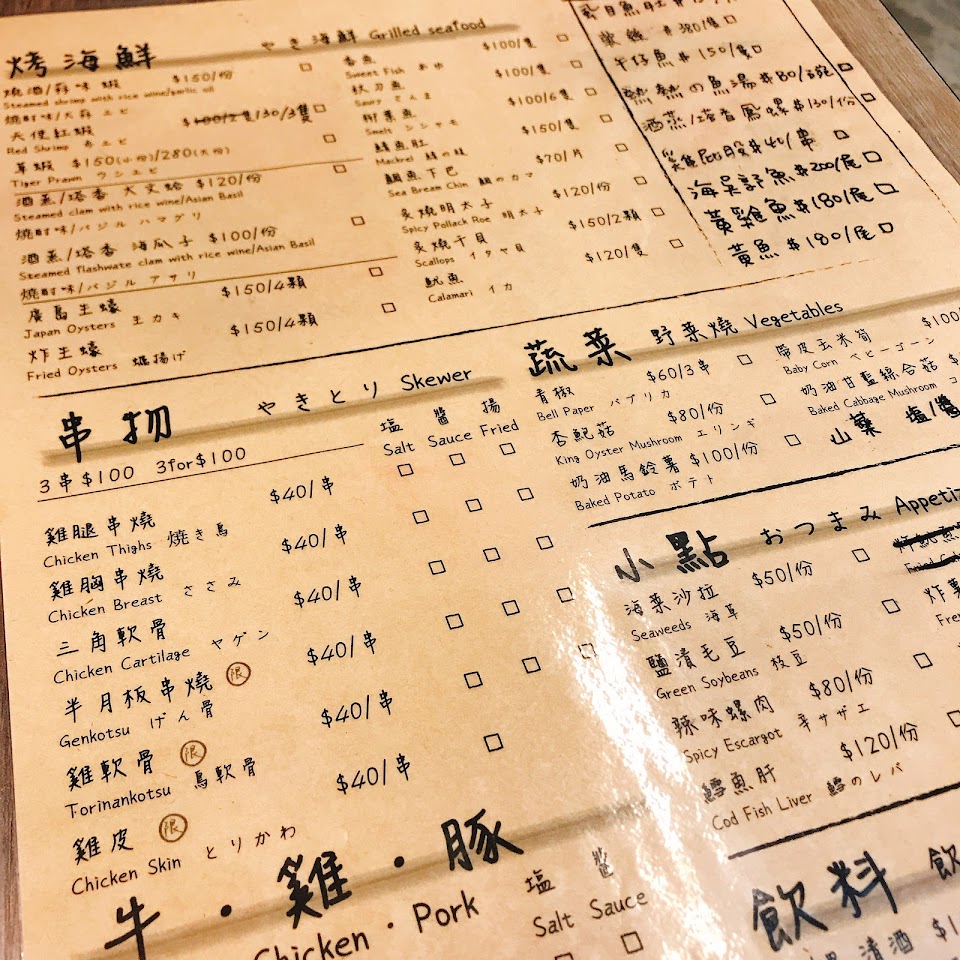 烤海鮮 やき海鮮 Grilled seafood
燒酒/蒜味 蝦 $150/份 □
Steamed shrimp with rice wine/garlic oil
燒酎味/大蒜 エビ
天使紅蝦 $100/2隻130/3隻□
Red Shrimp 赤エビ
草蝦 $150(小份)/280(大份) □
Tiger Prawn ウシエビ
酒蒸/塔香 大文蛤 $120/份 □
Steamed clam with rice wine/Asian Basil
燒酎味/バジル ハマグリ
酒蒸/塔香 海瓜子 $100/份 □
Steamed flashwate clam with rice wine/Asian Basil
燒酎味/バジル アサリ
廣島生蠔 $150/4顆 □
Japan Oysters 生カキ
炸生蠔 $150/4顆 □
Fried Oysters 蠣揚げ
香魚 $100/隻 □
Sweet Fish あゆ
秋刀魚 $100/隻 □
Saury さんま
柳葉魚 $100/6隻 □
Smelt シシャモ
鯖魚肚 $150/隻 □
Mackrel 鯖の肢
鯛魚下巴 $70/片 □
Sea Bream Chin 鯛のカマ
炙燒明太子 $120/份 □
Spicy Pollack Roe 明太子
炙燒干貝 $150/2顆 □
Scallops イタヤ貝
魷魚 $120/隻 □
Calamari イカ
午仔魚 $150/隻□
熱熱の魚湯 $80/碗 □
酒蒸/塔香鳳螺$130/份 □
雞屁股$40/串 □
海吳郭魚$200/尾 □
黃雞魚$180/尾 □
黃魚$180/尾 □
蔬菜 野菜燒 Vegetables
青椒 $60/3串 □
Bell Paper パプリカ
杏鮑菇 $80/份 □
King Oyster Mushroom エリンギ
奶油馬鈴薯 $100/份 □
Baked Potato ポテト
帶皮玉米筍 $100
Baby Corn ベビーゴーン
奶油甘藍綜合菇 $
Baked Cabbage Mushroom コ
山藥 塩/醬
串物 やきとり Skewer
塩 醬 揚
Salt Sauce Fried
3串$100 3for$100
雞腿串燒 $40/串 □ □ □
Chicken Thighs 焼き鳥
雞胸串燒 $40/串 □ □ □
Chicken Breast ささみ
三角軟骨 $40/串 □ □ □
Chicken Cartilage ヤゲン
半月板串燒 限 $40/串 □ □ □
Genkotsu げん骨
雞軟骨 限 $40/串 □ □ □
Torinankotsu 鳥軟骨
雞皮 限 $40/串 □
Chicken Skin とりかわ
小點 おつまみ Appetiz
海菜沙拉 $50/份 □
Seaweeds 海草
鹽漬毛豆 $50/份 □
Green Soybeans 枝豆
辣味螺肉 $80/份 □
Spicy Escargot 辛サザエ
鱈魚肝 $120/份 □
Cod Fish Liver 鱈のレバ
炸薯
Fre
牛・雞・豚
塩 醬
Chicken・Pork Salt Sauce
飲料 飲
清酒 $1